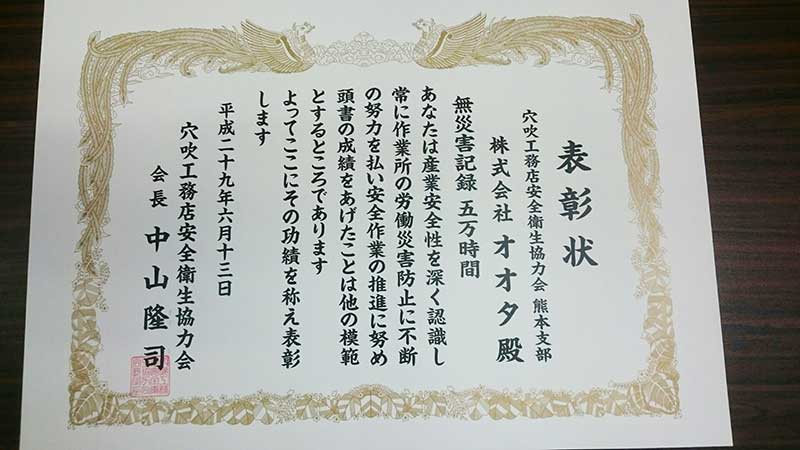 表彰状
穴吹工務店安全衛生協力会 熊本支部
株式会社 オオタ 殿
無災害記録 五万時間
あなたは産業安全性を深く認識し
常に作業所の労働災害防止に不断
の努力を払い安全作業の推進に努め
頭書の成績をあげたことは他の模範
とするところであります
よってここにその功績を称え表彰
します
平成二十九年六月十三日
穴吹工務店安全衛生協力会
会長 中山隆司